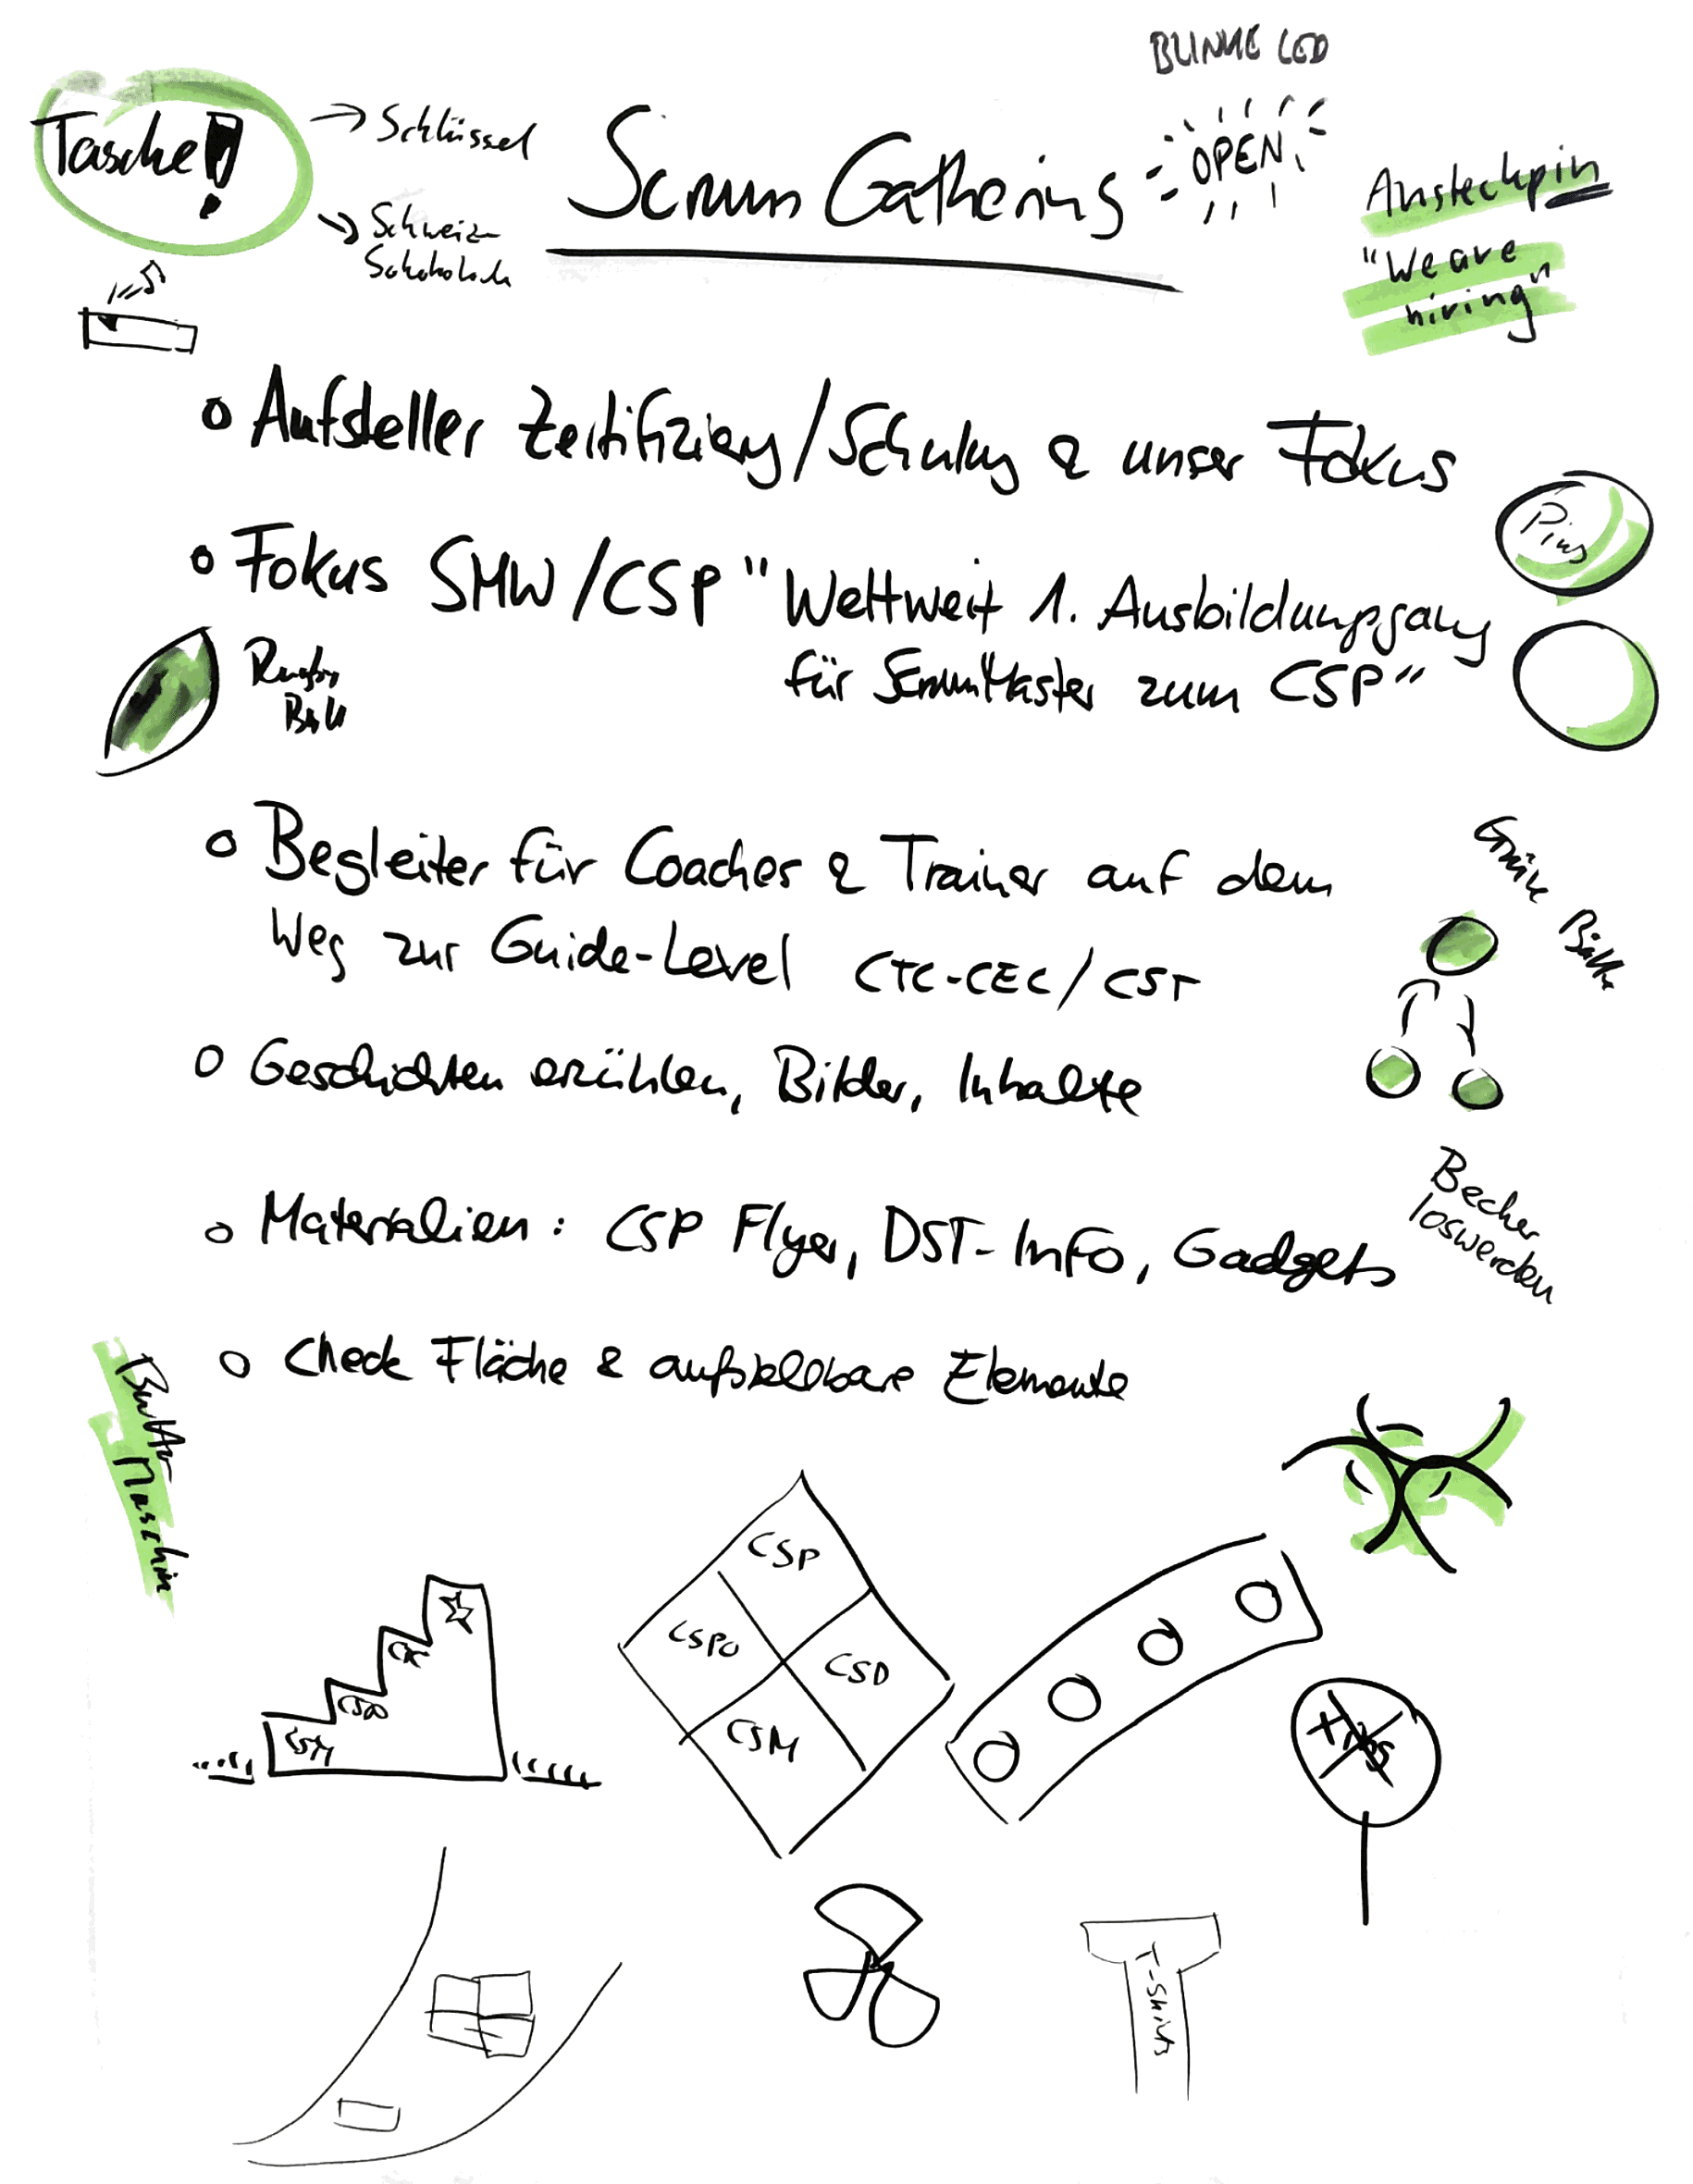 BLINKE LED
Tasche!
→ Schlüssel
→ Schweiz-
Schokolade
Scrum Gathering
OPEN
Ansteckpin
"We are
hiring"
Aufsteller Zertifizierung/Schulung & unser Fokus
Pins
Fokus SMW/CSP "Weltweit 1. Ausbildungsgang
für ScrumMaster zum CSP"
Rugby
Ball
Begleiter für Coaches & Trainer auf dem
Weg zur Guide-Level CTC-CEC/CST
Grüne Bälle
Geschichten erzählen, Bilder, Inhalte
Materialien: CSP Flyer, DST-Info, Gadgets
Becher
loswerden
Check Fläche & aufstellbare Elemente
Button
Maschin
CSP
CSPO
CSD
CSM
CSM
T-Shirts